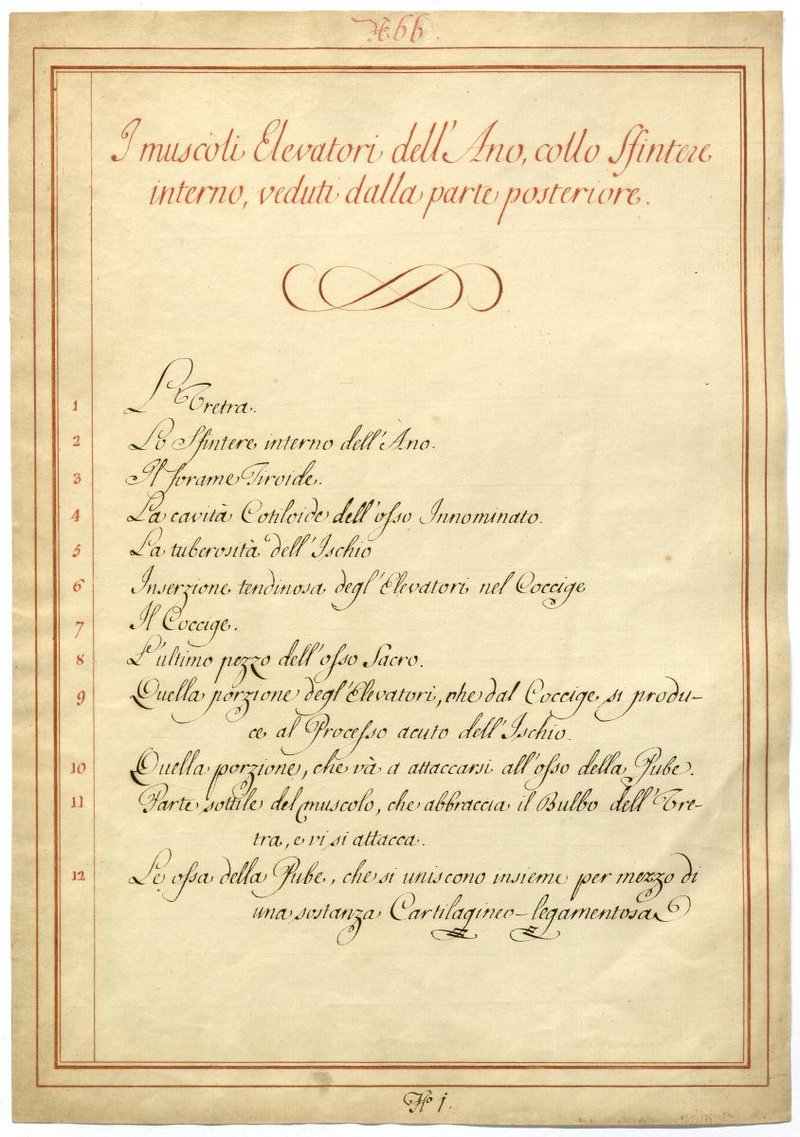 № 66.
I muscoli Elevatori dell'Ano, collo Sfintere
interno, veduti dalla parte posteriore.
1 L'Uretra.
2 Lo Sfintere interno dell'Ano.
3 Il forame Tiroide.
4 La cavità Cotiloide dell'osso Innominato.
5 La tuberosità dell'Ischio
6 Inserzione tendinosa degl'Elevatori nel Coccige
7 Il Coccige.
8 L'ultimo pezzo dell'osso Sacro.
9 Quella porzione degl'Elevatori, che dal Coccige si produ-
ce al Processo acuto dell'Ischio.
10 Quella porzione, che và a attaccarsi all'osso della Pube.
11 Parte sottile del muscolo, che abbraccia il Bulbo dell'Ure-
tra, e vi si attacca.
12 Le ossa della Pube, che si uniscono insieme per mezzo di
una sostanza Cartilagineo-legamentosa
№ 1.